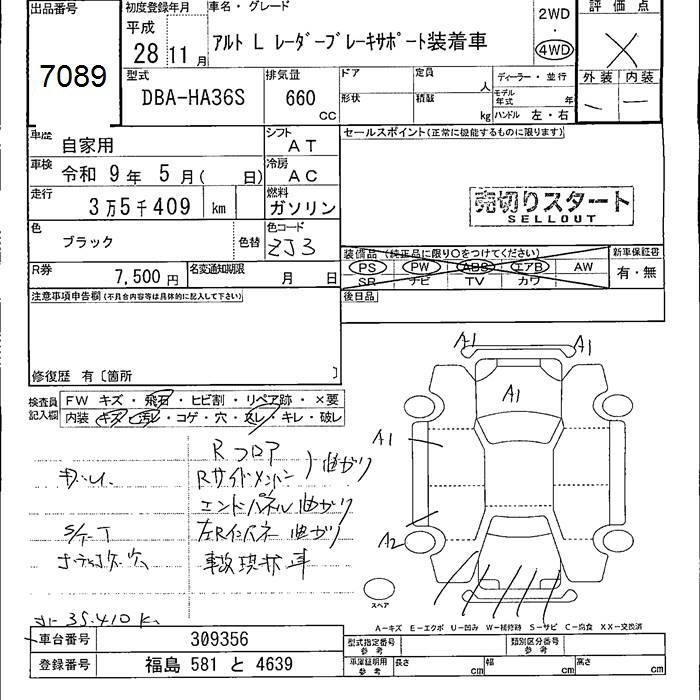 出品番号
7089
初度登録年月
平成
28 11 月
車名・グレード
アルト L レーダーブレーキサポート装着車
2WD
・
4WD
評価点
X
外装 内装
型式
DBA-HA36S
排気量
660 CC
ドア
形状
定員 人
積載 kg
ディーラー・並行
モデル年式 年
ハンドル 左・右
車歴 自家用
シフト AT
セールスポイント(正常に機能するものに限ります)
車検 令和 9 年 5 月( 日)
冷房 AC
走行 3 万 5 千 409 km
燃料 ガソリン
売切りスタート
SELLOUT
色 ブラック 色替
色コード ZJ3
装備品(純正品に限り○をつけてください)
PS PW ABS エアB AW
SR ナビ TV カワ
新車保証書
有・無
R券 7,500 円
名変通知期限 月 日
後日品
注意事項申告欄(不具合内容等は具体的に記入して下さい)
修復歴 有〔箇所 〕
検査員記入欄
FW キズ・飛石・ヒビ割・リペア跡・×要
内装 キズ・汚レ・コゲ・穴・スレ・キレ・破レ
Rフロア
Rサイドメンバー 曲がり
エンドパネル 曲がり
左Rインパネ 曲がり
事故現状車
35.410K
A1
A1
A1
A1
A2
スペア
A-キズ E-エクボ U-凹み W-補修跡 S-サビ C-腐食 XX-交換済
車台番号 309356
登録番号 福島 581 と 4639
型式指定番号 参考
類別区分番号 参考
車庫証明用 参考
長さ cm 幅 cm 高さ cm